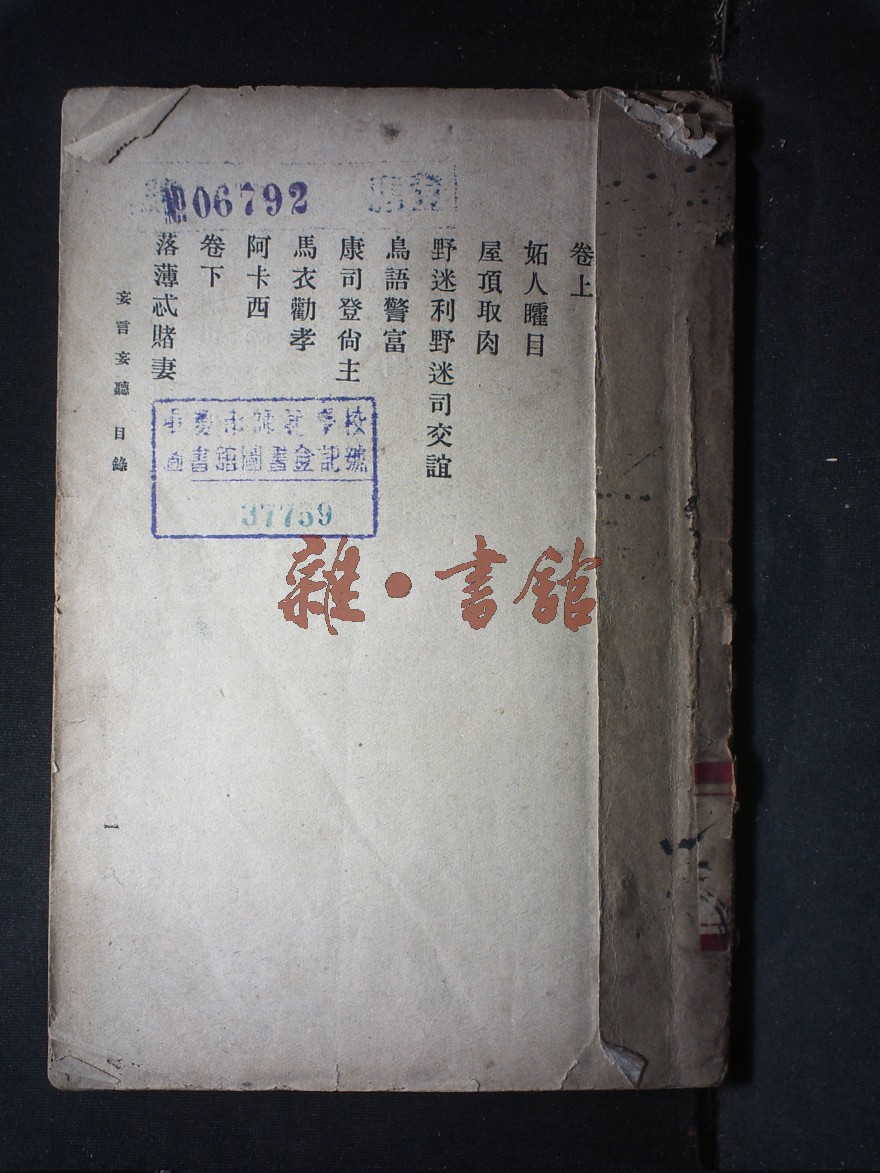 卷上
妬人矐目
屋頂取肉
野迷利野迷司交誼
鳥語警富
康司登尙主
馬衣勸孝
阿卡西
卷下
落薄忒賭妻
妄言妄聽 目錄
一
06792
37759
雜·書館